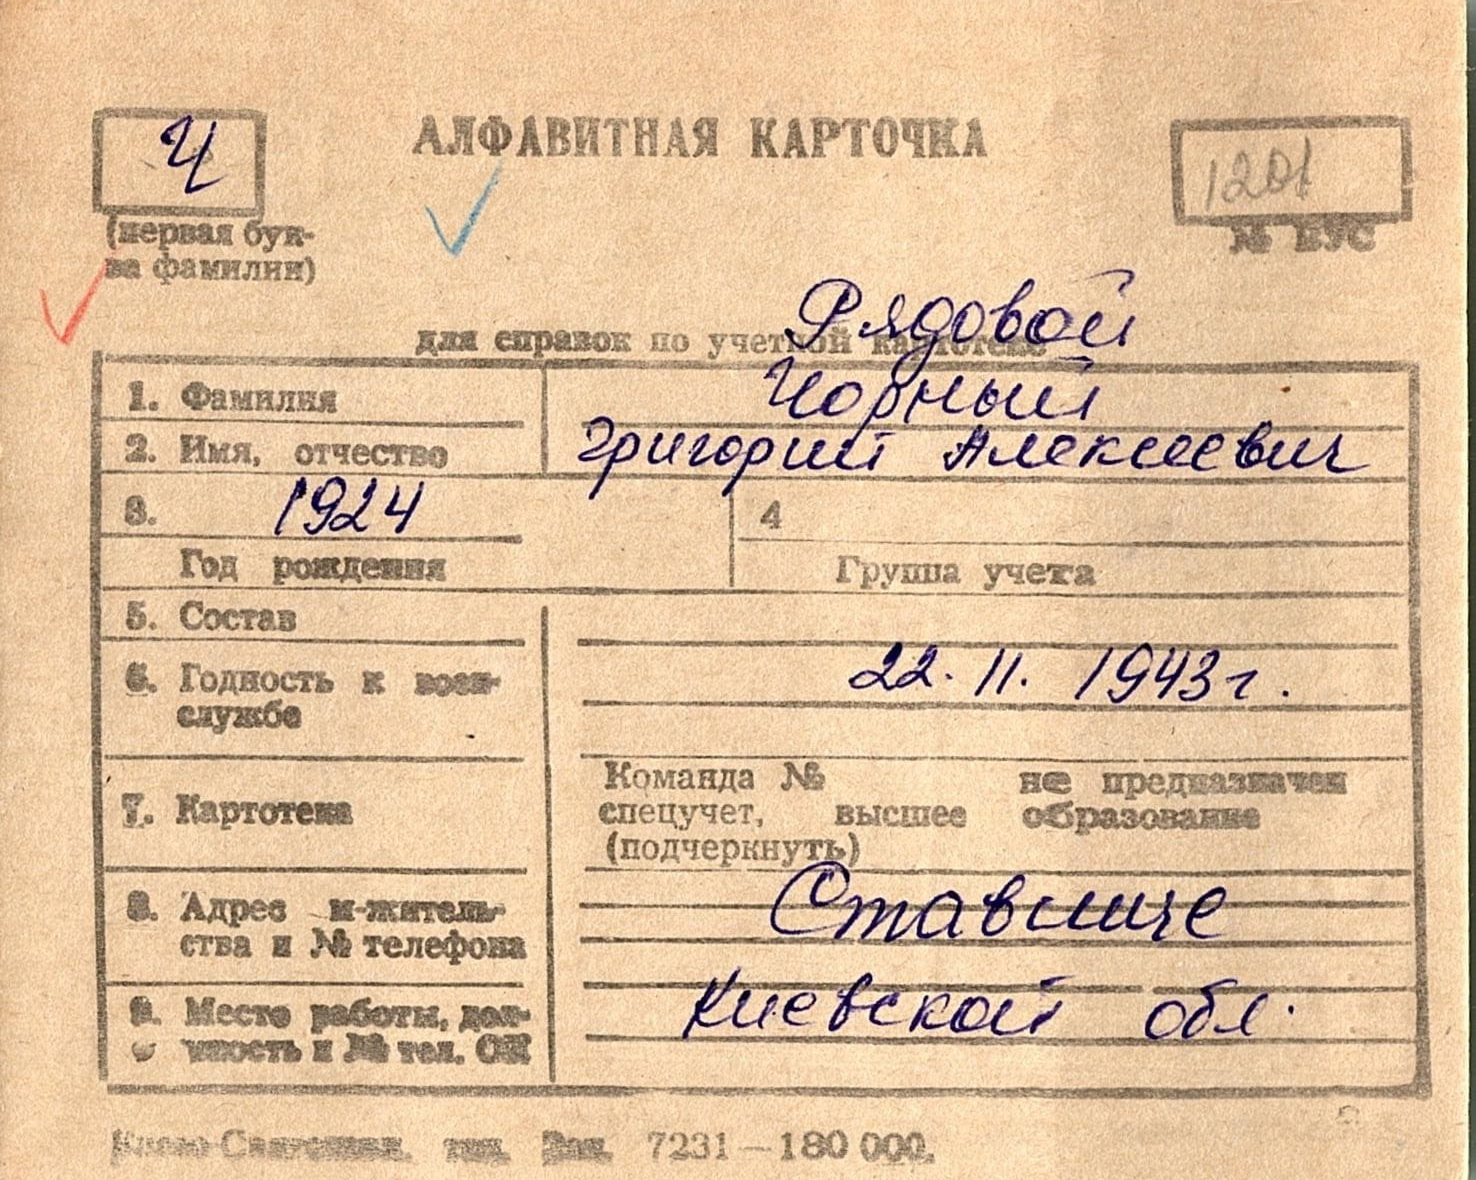 Ч
АЛФАВИТНАЯ КАРТОЧКА
1201
(первая бук-
ва фамилии)
№ ВУС
Рядовой
для справок по учетной картотеке
1. Фамилия
Чорный
2. Имя, отчество
Григорий Алексеевич
3. 1924
4
Год рождения
Группа учета
5. Состав
6. Годность к воен-
службе
22. 11. 1943 г.
7. Картотека
Команда № не предназначен
спецучет, высшее образование
(подчеркнуть)
8. Адрес м-житель-
ства и № телефона
Ставище
9. Место работы, дол-
жность и № тел. ОК
Киевской обл.
тип. Зак. 7231—180 000.